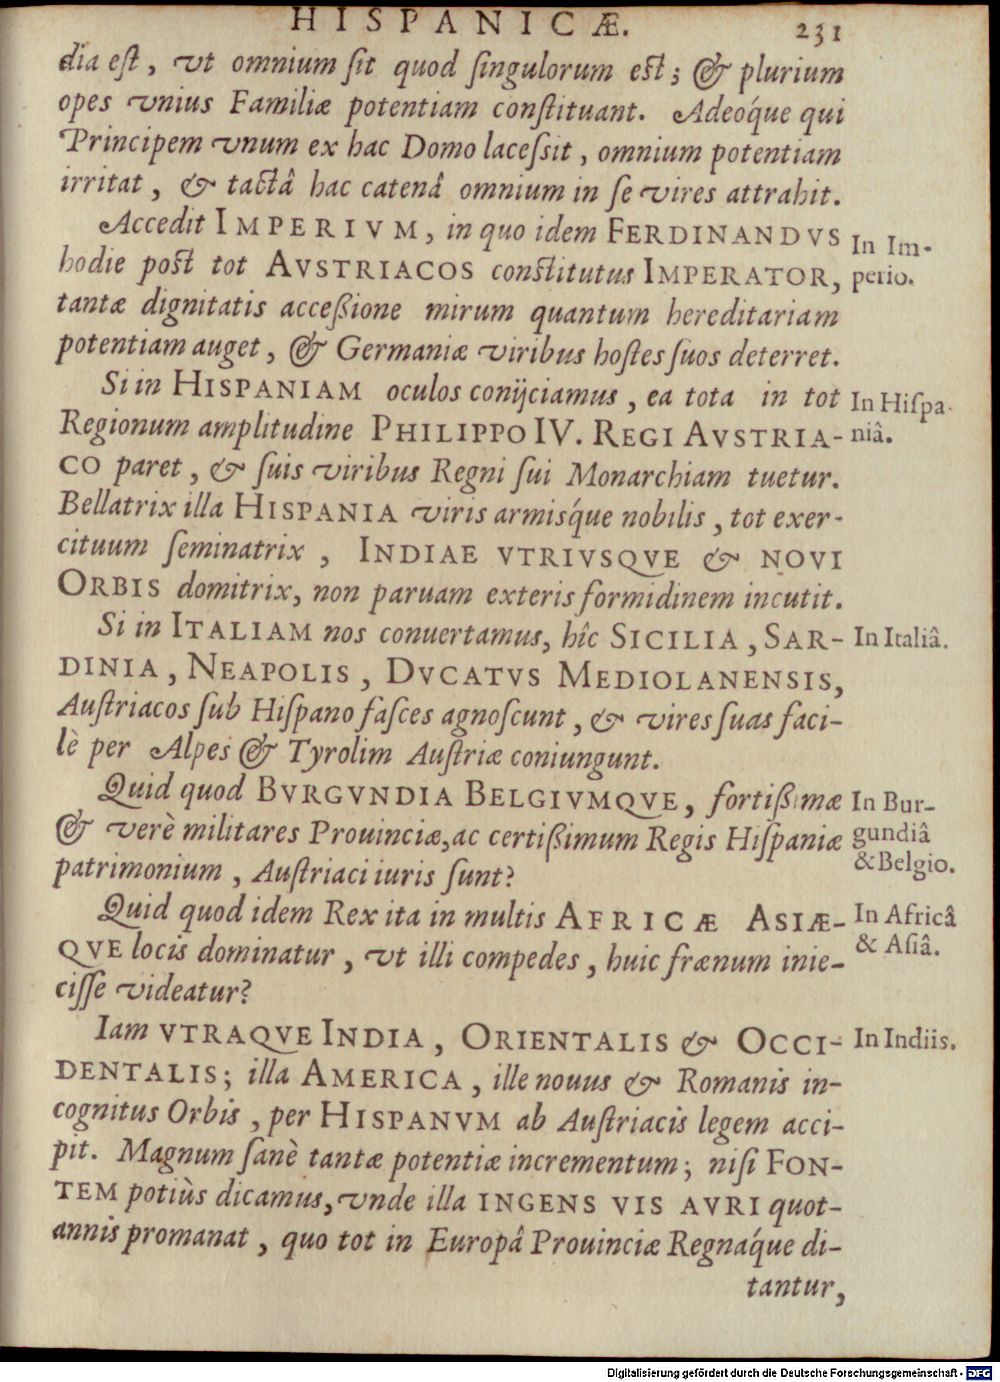 HISPANICÆ. 231
dia eſt, vt omnium ſit quod ſingulorum eſt; & plurium
opes vnius Familiæ potentiam conſtituant. Adeóque qui
Principem vnum ex hac Domo laceſsit, omnium potentiam
irritat, & tactâ hac catenâ omnium in ſe vires attrahit.
Accedit IMPERIVM, in quo idem FERDINANDVS
In Im-
hodie poſt tot AVSTRIACOS conſtitutus IMPERATOR,
perio.
tantæ dignitatis acceßione mirum quantum hereditariam
potentiam auget, & Germaniæ viribus hoſtes ſuos deterret.
Si in HISPANIAM oculos conijciamus, ea tota in tot
In Hiſpa-
Regionum amplitudine PHILIPPO IV. REGI AVSTRIA-
niâ.
CO paret, & ſuis viribus Regni ſui Monarchiam tuetur.
Bellatrix illa HISPANIA viris armiſque nobilis, tot exer-
cituum ſeminatrix, INDIAE VTRIVSQVE & NOVI
ORBIS domitrix, non paruam exteris formidinem incutit.
Si in ITALIAM nos conuertamus, hîc SICILIA, SAR-
In Italiâ.
DINIA, NEAPOLIS, DVCATVS MEDIOLANENSIS,
Auſtriacos ſub Hiſpano faſces agnoſcunt, & vires ſuas faci-
lè per Alpes & Tyrolim Auſtriæ coniungunt.
Quid quod BVRGVNDIA BELGIVMQVE, fortißimæ
In Bur-
& verè militares Prouinciæ, ac certißimum Regis Hiſpaniæ
gundiâ
patrimonium, Auſtriaci iuris ſunt?
& Belgio.
Quid quod idem Rex ita in multis AFRICÆ ASIÆ-
In Africâ
QVE locis dominatur, vt illi compedes, huic frænum inie-
& Aſiâ.
ciſſe videatur?
Iam VTRAQVE INDIA, ORIENTALIS & OCCI-
In Indiis.
DENTALIS; illa AMERICA, ille nouus & Romanis in-
cognitus Orbis, per HISPANVM ab Auſtriacis legem acci-
pit. Magnum ſanè tantæ potentiæ incrementum; niſi FON-
TEM potiùs dicamus, vnde illa INGENS VIS AVRI quot-
annis promanat, quo tot in Europâ Prouinciæ Regnáque di-
tantur,
Digitalisierung gefördert durch die Deutsche Forschungsgemeinschaft - DFG